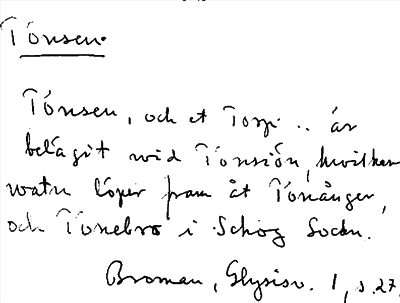 Tönsen.
Tönsen, och et Torp .. är
belägit wid Tönsiön, hwilken
watn löper fram åt Tönånger,
och Tönebro i Skog Sockn.
Broman, Glysisv. 1, s. 27.